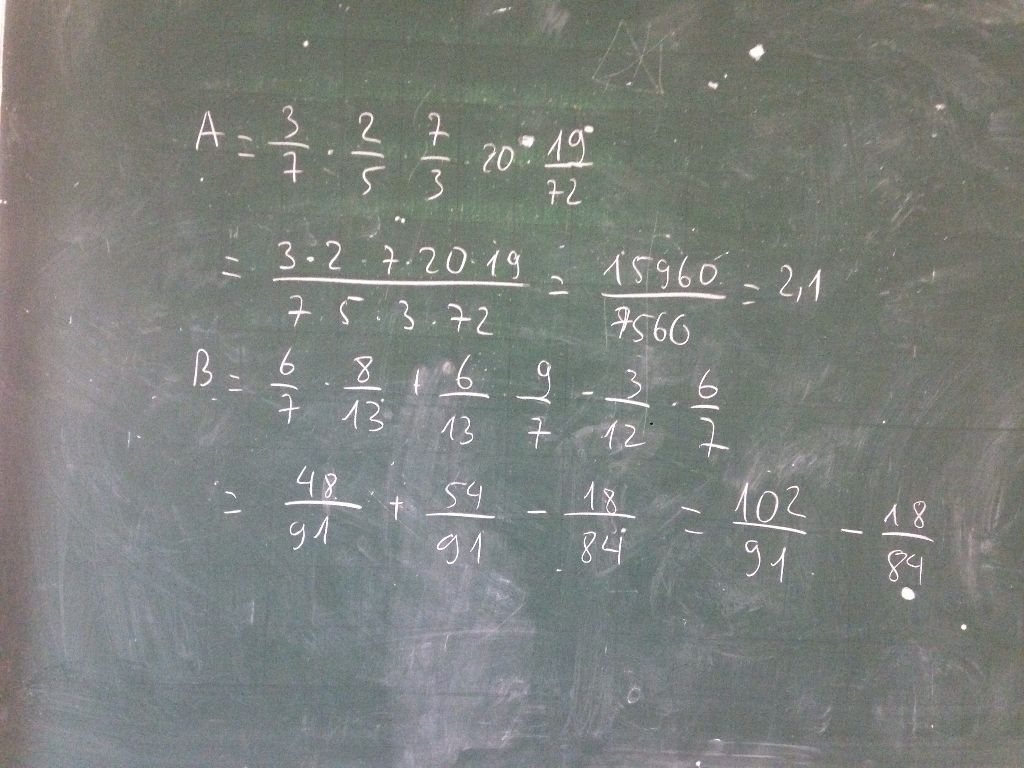 A = 3/7 · 2/5 7/3 · 20 · 19/72
= 3·2·7·20·19 / 7 5·3·72 = 15960/7560 = 2,1
B = 6/7 · 8/13 + 6/13 9/7 - 3/12 · 6/7
= 48/91 + 54/91 - 18/84 = 102/91 - 18/84